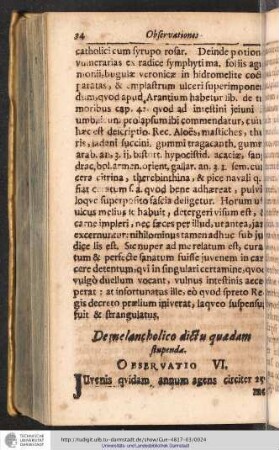 34 Observationes
catholici cum syrupo rosar. Deinde potion
vulnerarias ex radice symphyti ma. foliis agri
monii, bugulæ veronicæ in hidromelite coct
paratas, & emplastrum ulceri superimponen
dum, qvod apud Arantium habetur lib. de tu
moribus cap. 42. quod ad intestini jejuni
umbil. un. prolapsum ibi commendatur, cui
hæc est descriptio. Rec. Aloës, mastiches, thu
ris, ladani succini, gummi tragacanth. gumm
arab. an. 3. ij. bistort. hypocistid. acaciæ, san
drac. bol. armen. orient. galiar. an. 3. j. sem.
cera citrina, therebinthina, & pice navali q
fiat s. a. qvod bene adhæreat, pulvi
loqve superposito fascia deligetur. Horum u
ulcus melius se habuit, detergeri visum est,
carne impleri, nec fæces per illud, ut antea, jan
excernuntur: nihilominus tamen adhuc sub ju
dice lis est. Sæ nuper ad me relatum est, cura
tum & perfecte sanatum fuisse juvenem in car
cere detentum, qvi in singulari certamine, qvod
vulgò duellum vocant, vulnus intestinis acce
perat: at infortunatus ille, eò qvod spreto Re
gis decreto prælium iniverat, laqveo suspensus
fuit & strangulatus.
De melancholico dictu quædam
stupenda.
OBSERVATIO VI.
Juvenis qvidam annum agens circiter 25
http://tudigit.ulb.tu-darmstadt.de/show/Gue-4817-63/0024
Universitäts- und Landesbibliothek Darmstadt